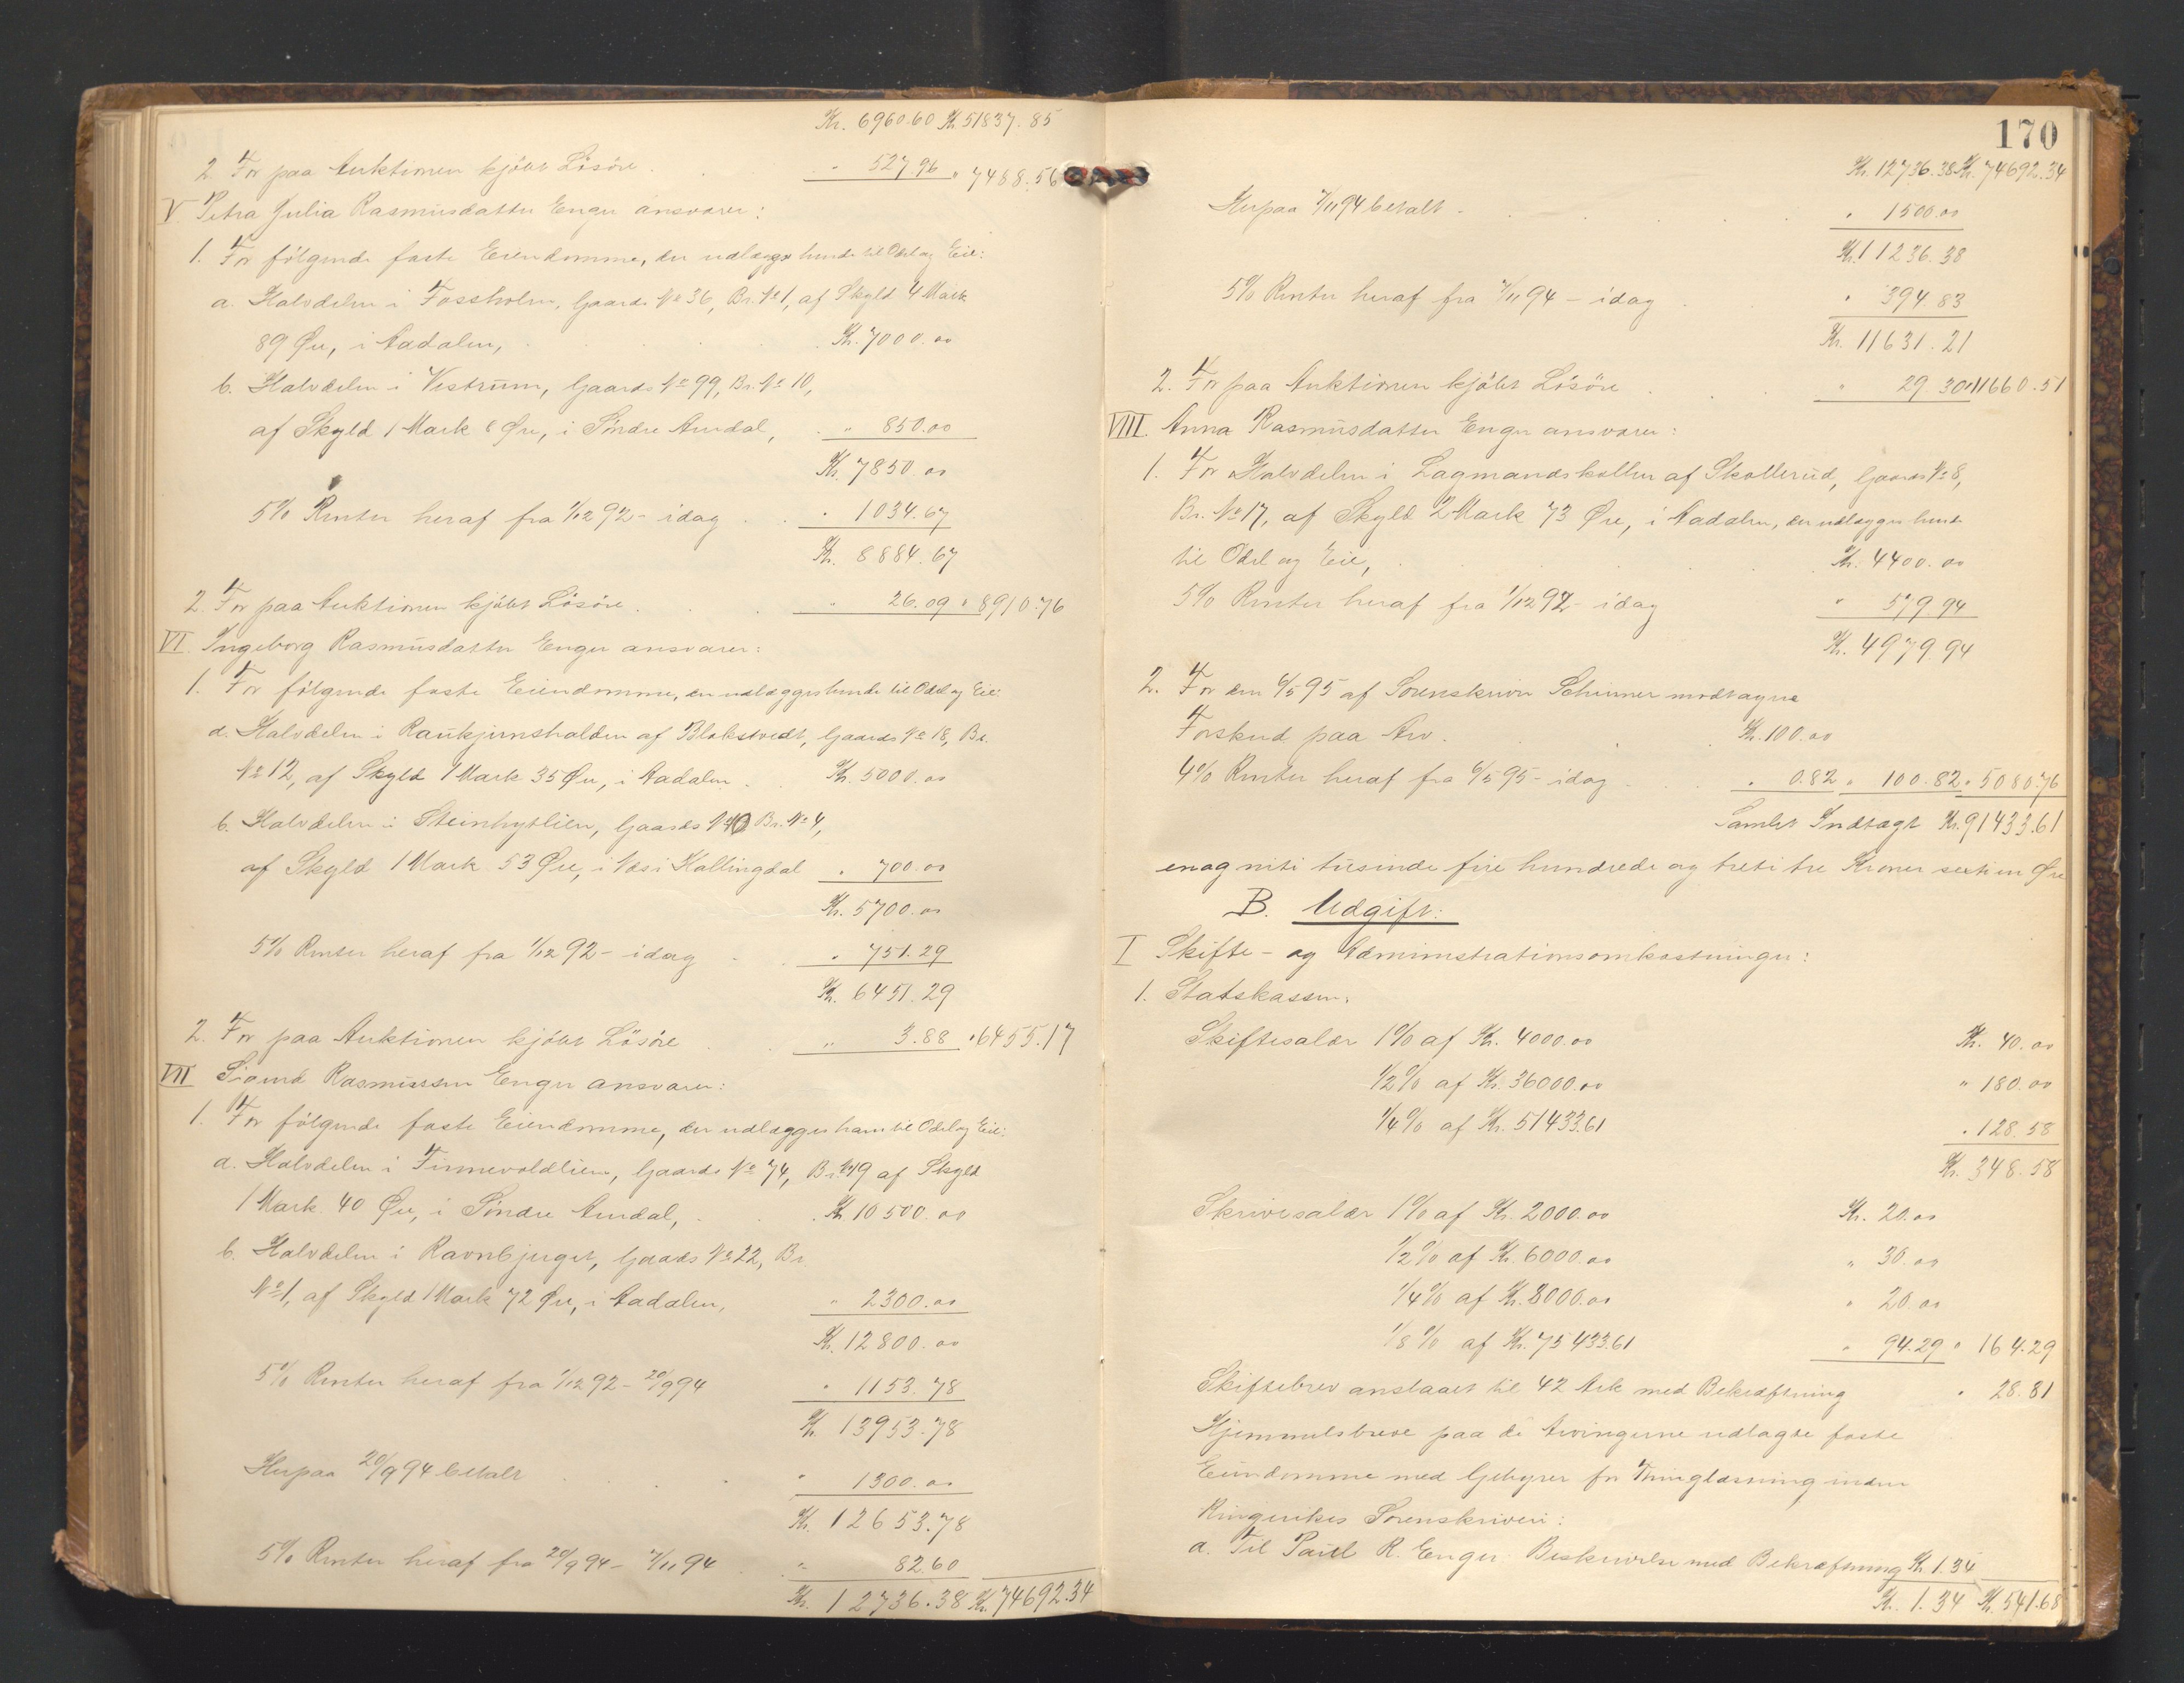 Kr. 6960.60 Kr. 51837.85
2. For paa Auktionen kjöbt Lösöre . " 527.96 " 7488.56
V. Petra Julia Rasmusdatter Enger ansvarer:
1. For fölgende faste Eiendomme, der udlægges hende til Odel og Eie:
a. Halvdelen i Fossholm, Gaards No 36, Br. No 1, af Skyld 4 Mark
89 Øre, i Aadalen, Kr. 7000.00
b. Halvdelen i Vestrum, Gaards No 99, Br. No 10,
af Skyld 1 Mark 6 Øre, i Söndre Aurdal, " 850.00
Kr. 7850.00
5% Renter heraf fra 1/12 92 - idag " 1034.67
Kr. 8884.67
2. For paa Auktionen kjöbt Lösöre . " 26.09 " 8910.76
VI Ingeborg Rasmusdatter Enger ansvarer:
1. For fölgende faste Eiendomme, der udlægges hende til Odel og Eie:
a. Halvdelen i Raukjernshalden af Blakstvedt, Gaards No 18, Br.
No 12, af Skyld 1 Mark 35 Øre, i Aadalen . Kr. 5000.00
b. Halvdelen i Steinhytlien, Gaards No 40 Br. No 4,
af Skyld 1 Mark 53 Øre, i Næs i Hallingdal " 700.00
Kr. 5700.00
5% Renter heraf fra 1/12 92 - idag " 751.29
Kr. 6451.29
2. For paa Auktionen kjöbt Lösöre " 3.88 " 6455.17
VII Sigurd Rasmussen Enger ansvarer:
1. For fölgende faste Eiendomme, der udlægges ham til Odel og Eie:
a. Halvdelen i Finnevoldlien, Gaards No 74, Br. No 19 af Skyld
1 Mark 40 Øre, i Söndre Aurdal, Kr. 10500.00
b. Halvdelen i Ravnbjerget, Gaards No 22, Br.
No 1, af Skyld 1 Mark 72 Øre, i Aadalen, " 2300.00
Kr. 12800.00
5% Renter heraf fra 1/12 92 - 20/9 94 " 1153.78
Kr. 13953.78
Herpaa 20/9 94 betalt " 1300.00
Kr. 12653.78
5% Renter heraf fra 20/9 94 - 7/11 94 " 82.60
Kr. 12736.38 Kr. 74692.34
170
Kr. 12736.38 Kr. 74692.34
Herpaa 7/11 94 betalt . " 1500.00
Kr. 11236.38
5% Renter heraf fra 7/11 94 - idag " 394.83
Kr. 11631.21
2. For paa Auktionen kjöbt Lösöre " 29.30 " 11660.51
VIII. Anna Rasmusdatter Enger ansvarer:
1. For Halvdelen i Lagmandskollen af Skollerud, Gaards No 8,
Br. No 17, af Skyld 2 Mark 73 Øre, i Aadalen, der udlægges hende
til Odel og Eie, Kr. 4400.00
5% Renter heraf fra 1/12 92 - idag " 579.94
Kr. 4979.94
2. For den 6/5 95 af Sorenskriver Schiwer modtagne
Forskud paa Arv . Kr. 100.00
4% Renter heraf fra 6/5 95 - idag " 0.82 " 100.82 " 5080.76
Samlet Indtægt Kr. 91433.61
en og niti tusinde fire hundrede og treti tre Kroner sexti en Øre
B. Udgift:
I Skifte- og Administrationsomkostninger:
1. Statskassen:
Skiftesalær 1% af Kr. 4000.00 Kr. 40.00
1/2% af Kr. 36000.00 " 180.00
1/4% af Kr. 51433.61 " 128.58
Kr. 348.58
Skriversalær 1% af Kr. 2000.00 Kr. 20.00
1/2% af Kr. 6000.00 " 30.00
1/4% af Kr. 8000.00 " 20.00
1/8% af Kr. 75433.61 " 94.29 " 164.29
Skiftebrev anslaaet til 42 Ark med Bekræftning " 28.81
Hjemmelsbreve paa de Arvingerne udlagte faste
Eiendomme med Gebyrer for Thinglæsning inden
Ringerikes Sorenskriveri:
a. Til Paul R. Enger: Beskrivelse med Bekræftning Kr. 1.34
Kr. 1.34 Kr. 541.68